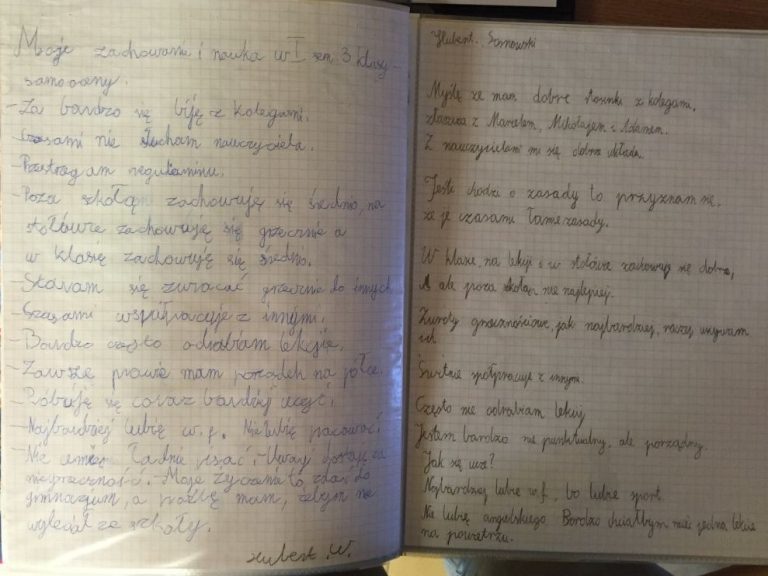 Moje zachowanie i nauka w I sem 3 klasy -
samooceny.
- Za bardzo się biję z kolegami.
- Czasami nie słucham nauczyciela.
- Przstrzegam regulaminu.
- Poza szkołą zachowuję się średnio, na
stołówce zachowuję się grzecznie a
w klasie zachowuję się średnio.
- Staram się zwracać grzecznie do innych
- Czasami współpracuje z innymi.
- Bardzo często odrabiam lekcjie.
- Zawsze prawie mam porządek na półce.
- Próbuję się coraz bardziej uczyć.
- Najbardziej lubię w.f. Nie lubię pracować
- Nie umiem ładnie pisać. - Uwagi dostaję za
niegrzeczność. - Moje życzenie to, zdać do
gimnazjum, a prośbę mam, żebym nie
wyleciał ze szkoły.
Hubert .W.
Hubert. Sarnowski
Myślę że mam dobre stosunki z kolegami,
złaszcza z Marcelem, Mikołajem i Adamem.
Z nauczycielami mi się dobrze układa.
Jeśli chodzi o zasady to przyznam się,
że je czasami łamie zasady.
W klasie, na lekcji i w stołówce zachowuję się dobrze,
ale poza szkołą nie najlepiej.
Zwroty grzecznościowe, jak najbardziej, raczej używam
ich.
Świetnie spółpracuje z innymi.
Często nie odrabiam lekcij
Jestem bardzo nie punktualny, ale porządny.
Jak się uczę?
Najbardziej lubię w.f., bo lubię sport.
Nie lubię angielskiego. Bardzo chciałbym mieć jedną lekcie
na powietrzu.